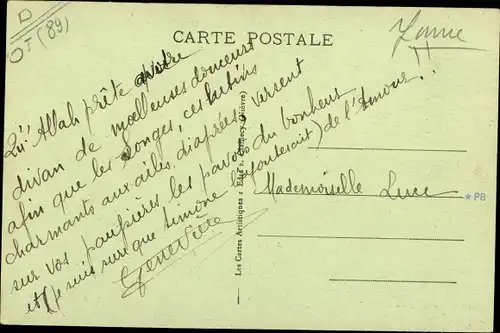 D
OT (89)
CARTE POSTALE
Yonne
Qu'Allah prête votre
divan de moelleuses douceurs
afin que les Songes, ces lutins
charmants aux ailes diaprées versent
sur vos paupières les pavots du bonheur
et (je suis sure que Simone ajouterait) de l'Amour.
Geneviève
Mademoiselle Luce
Les Cartes Artistiques « (Nièvre)
* PB